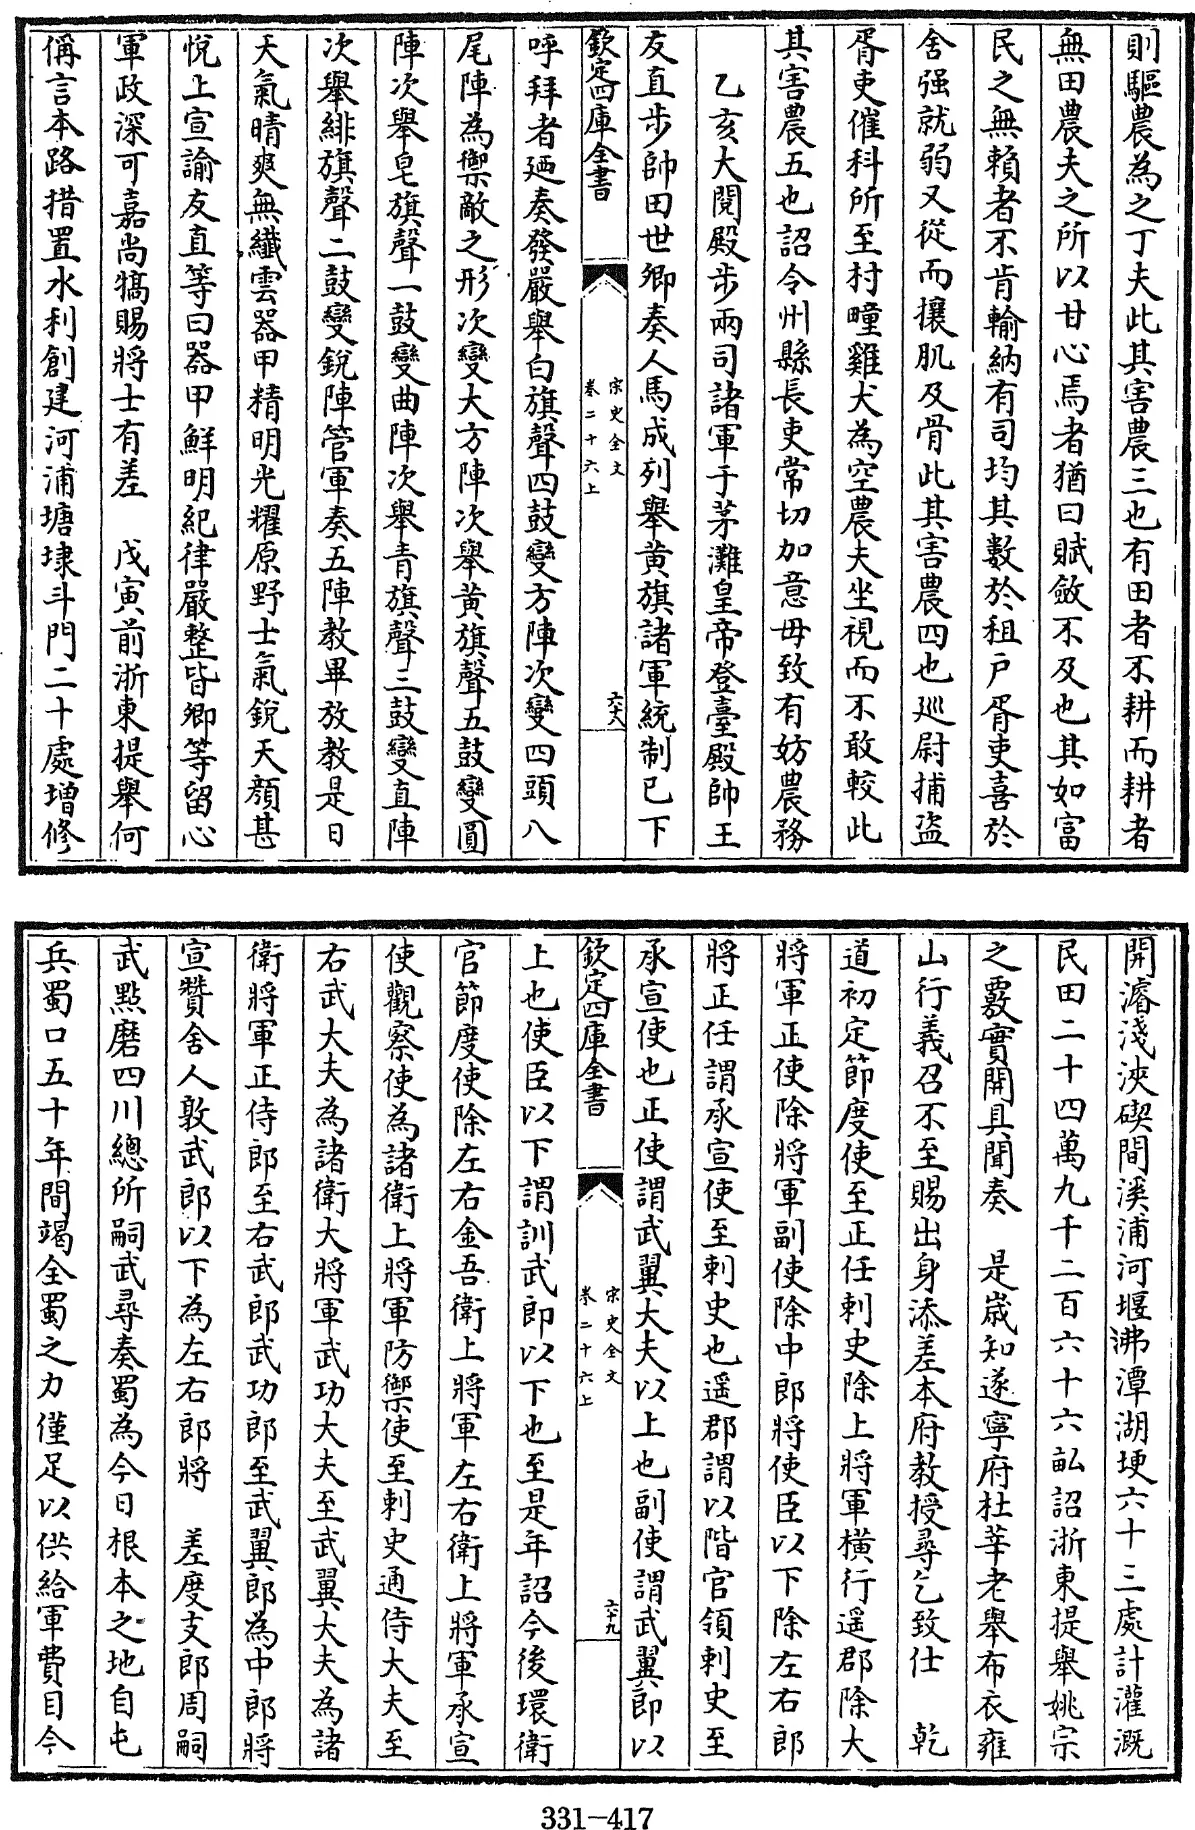 則驅農為之丁夫此其害農三也有田者不耕而耕者
無田農夫之所以甘心焉者猶曰賦斂不及也其如富
民之無賴者不肯輸納有司均其數於租户胥吏喜於
舍强就弱又從而攘肌及骨此其害農四也巡尉捕盗
胥吏催科所至村疃雞犬為空農夫坐視而不敢較此
其害農五也詔令州縣長吏常切加意毋致有妨農務
乙亥大閱殿步兩司諸軍于茅灘皇帝登臺殿帥王
友直步帥田世卿奏人馬成列舉黄旗諸軍統制已下
欽定四庫全書
宋史全文
卷二十六上
六十八
呼拜者廼奏發嚴舉白旗聲四鼓變方陣次變四頭八
尾陣為禦敵之形次變大方陣次舉黄旗聲五鼓變圓
陣次舉皂旗聲一鼓變曲陣次舉青旗聲三鼓變直陣
次舉緋旗聲二鼓變銳陣管軍奏五陣教畢放教是日
天氣晴爽無纖雲器甲精明光耀原野士氣銳天顔甚
悦上宣諭友直等曰器甲鮮明紀律嚴整皆卿等留心
軍政深可嘉尚犒賜將士有差　戊寅前浙東提舉何
偁言本路措置水利創建河浦塘埭斗門二十處增修
開濬淺浹碶閘溪浦河堰沸潭湖埂六十三處計灌溉
民田二十四萬九千二百六十六畝詔浙東提舉姚宗
之覈實開具聞奏　是嵗知遂寧府杜莘老舉布衣雍
山行義召不至賜出身添差本府教授尋乞致仕　乾
道初定節度使至正任刺史除上將軍橫行遥郡除大
將軍正使除將軍副使除中郎將使臣以下除左右郎
將正任謂承宣使至刺史也遥郡謂以階官領刺史至
承宣使也正使謂武翼大夫以上也副使謂武翼郎以
欽定四庫全書
宋史全文
卷二十六上
六十九
上也使臣以下謂訓武郎以下也至是年詔今後環衛
官節度使除左右金吾衛上將軍左右衛上將軍承宣
使觀察使為諸衛上將軍防禦使至刺史通侍大夫至
右武大夫為諸衛大將軍武功大夫至武翼大夫為諸
衛將軍正侍郎至右武郎武功郎至武翼郎為中郎將
宣贊舍人敦武郎以下為左右郎將　差度支郎周嗣
武點磨四川總所嗣武尋奏蜀為今日根本之地自屯
兵蜀口五十年間竭全蜀之力僅足以供給軍費目今
331-417